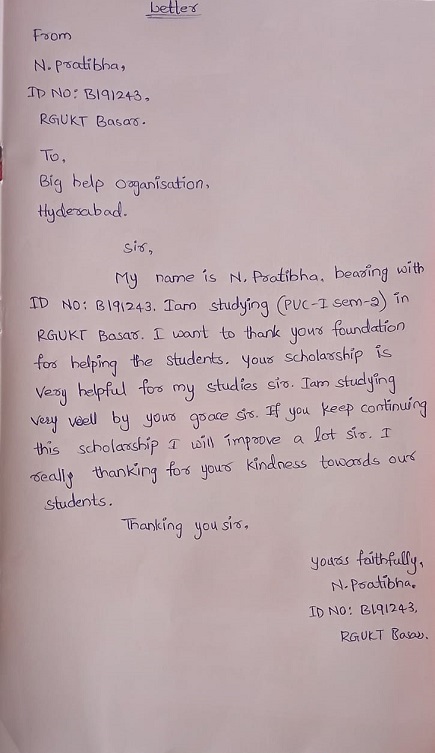 Letter
From
N. Pratibha,
ID NO: B191243,
RGUKT Basar.
To,
Big help organisation,
Hyderabad.
Sir,
My name is N. Pratibha. bearing with
ID NO: B191243. Iam studying (PUC-I sem-2) in
RGUKT Basar. I want to thank your foundation
for helping the students. your scholarship is
very helpful for my studies sir. Iam studying
very well by your grace sir. If you keep continuing
this scholarship I will improve a lot sir. I
really thanking for your kindness towards our
students.
Thanking you sir,
yours faithfully,
N. Pratibha.
ID NO: B191243,
RGUKT Basar.